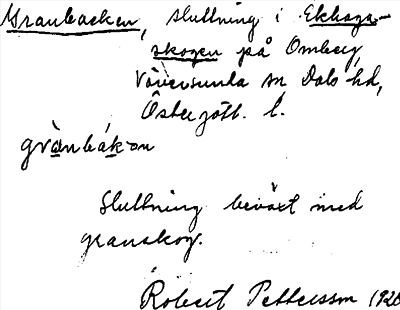 Granbacken, sluttning i Ekhags-
skogen på Omberg,
Väversunda sn Dals hd,
Östergötl. l.
grànbák:on
Sluttning beväxt med
granskog.
Robert Pettersson 1920